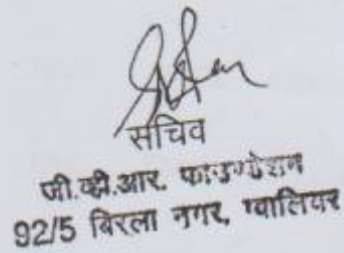 सचिव
जी.व्ही.आर. फाउण्डेशन
92/5 बिरला नगर, ग्वालियर